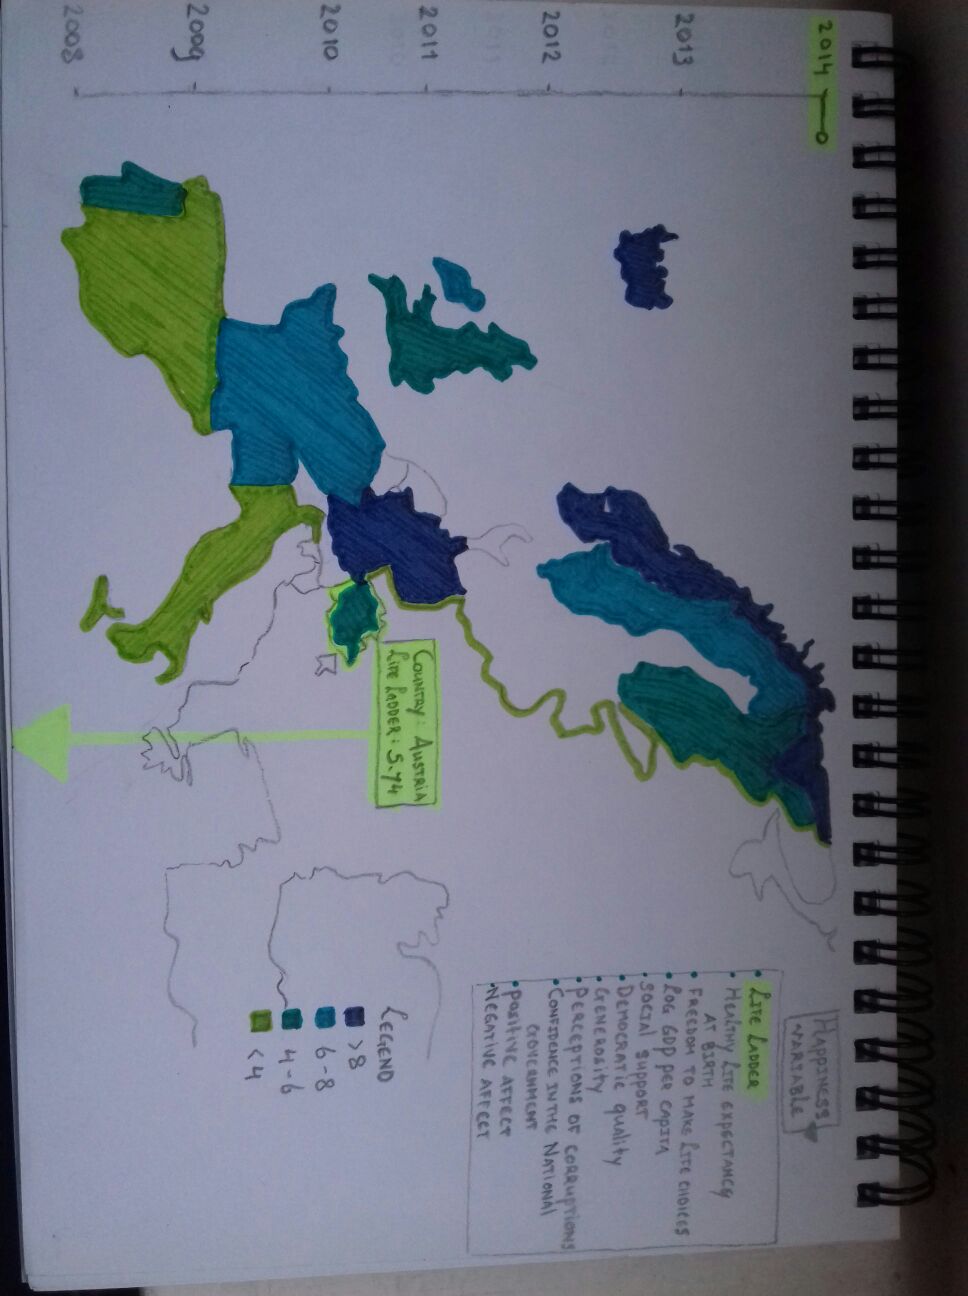 2014
2013
2012
2011
2010
2009
2008
HAPPINESS
VARIABLE
LIFE LADDER
HEALTHY LIFE EXPECTANCY
AT BIRTH
FREEDOM TO MAKE LIFE CHOICES
LOG GDP PER CAPITA
SOCIAL SUPPORT
DEMOCRATIC QUALITY
GENEROSITY
PERCEPTIONS OF CORRUPTIONS
CONFIDENCE IN THE NATIONAL
GOVERNMENT
POSITIVE AFFECT
NEGATIVE AFFECT
COUNTRY: AUSTRIA
LIFE LADDER: 5.74
LEGEND
>8
6-8
4-6
<4